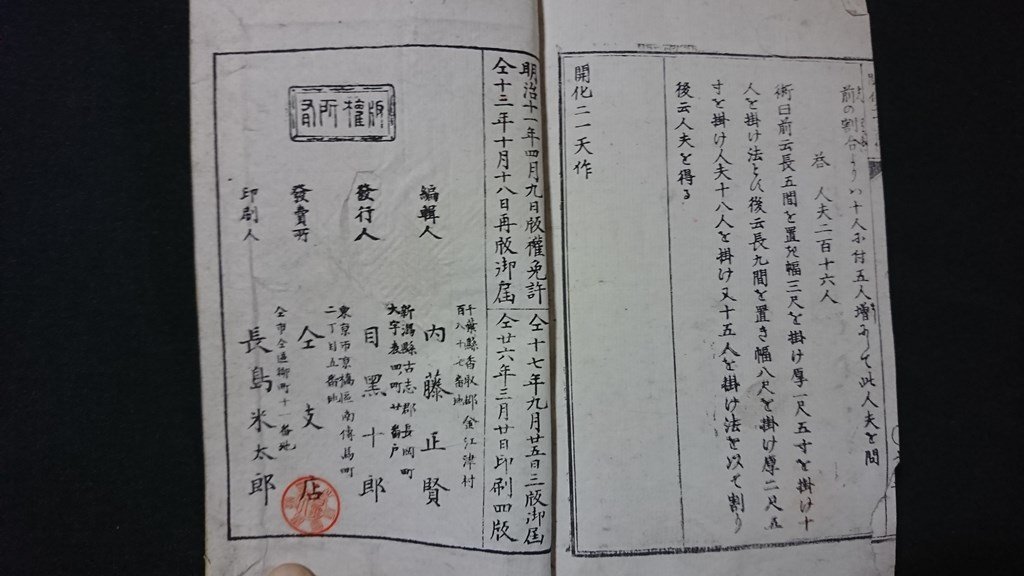 前の割合よりハ十人ニ付五人増にして此人夫を問
答 人夫二百十六人
術曰前云長五間を置き幅三尺を掛け厚一尺五寸を掛け十
人を掛け法とし後云長九間を置き幅八尺を掛け厚二尺五
寸を掛け人夫十八人を掛け又十五人を掛け法を以て割り
後云人夫を得る
開化二一天作
明治十一年四月九日版權免許
仝十三年十月十八日再版御届
仝十七年九月廿五日三版御届
仝廿六年三月廿日印刷四版
版權所有
編輯人
千葉縣香取郡金江津村
百八十七番地
内藤正賢
發行人
新潟縣古志郡長岡町
大字表四町廿番戸
目黑十郎
發賣所
東京市京橋區南傳馬町
二丁目五番地
仝支店
印刷人
仝市仝區柳町十一番地
長島米太郎